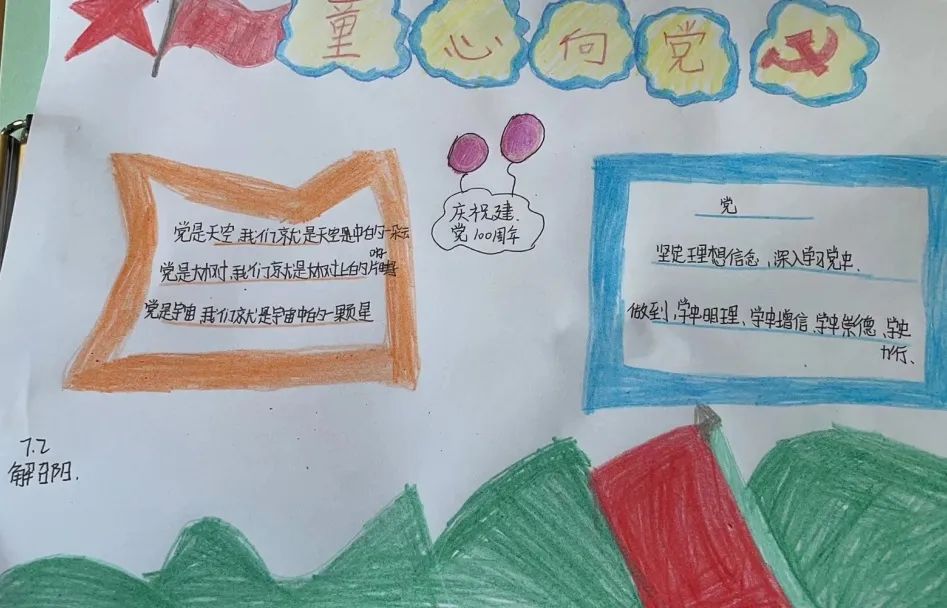 童心向党
党是天空,我们就是天空中的一朵云
党是大树,我们就是大树上的一片叶
党是宇宙,我们就是宇宙中的一颗星
庆祝建
党100周年
党
坚定理想信念,深入学习党史.
做到,学史明理、学史增信、学史崇德、学史
力行、
7.2